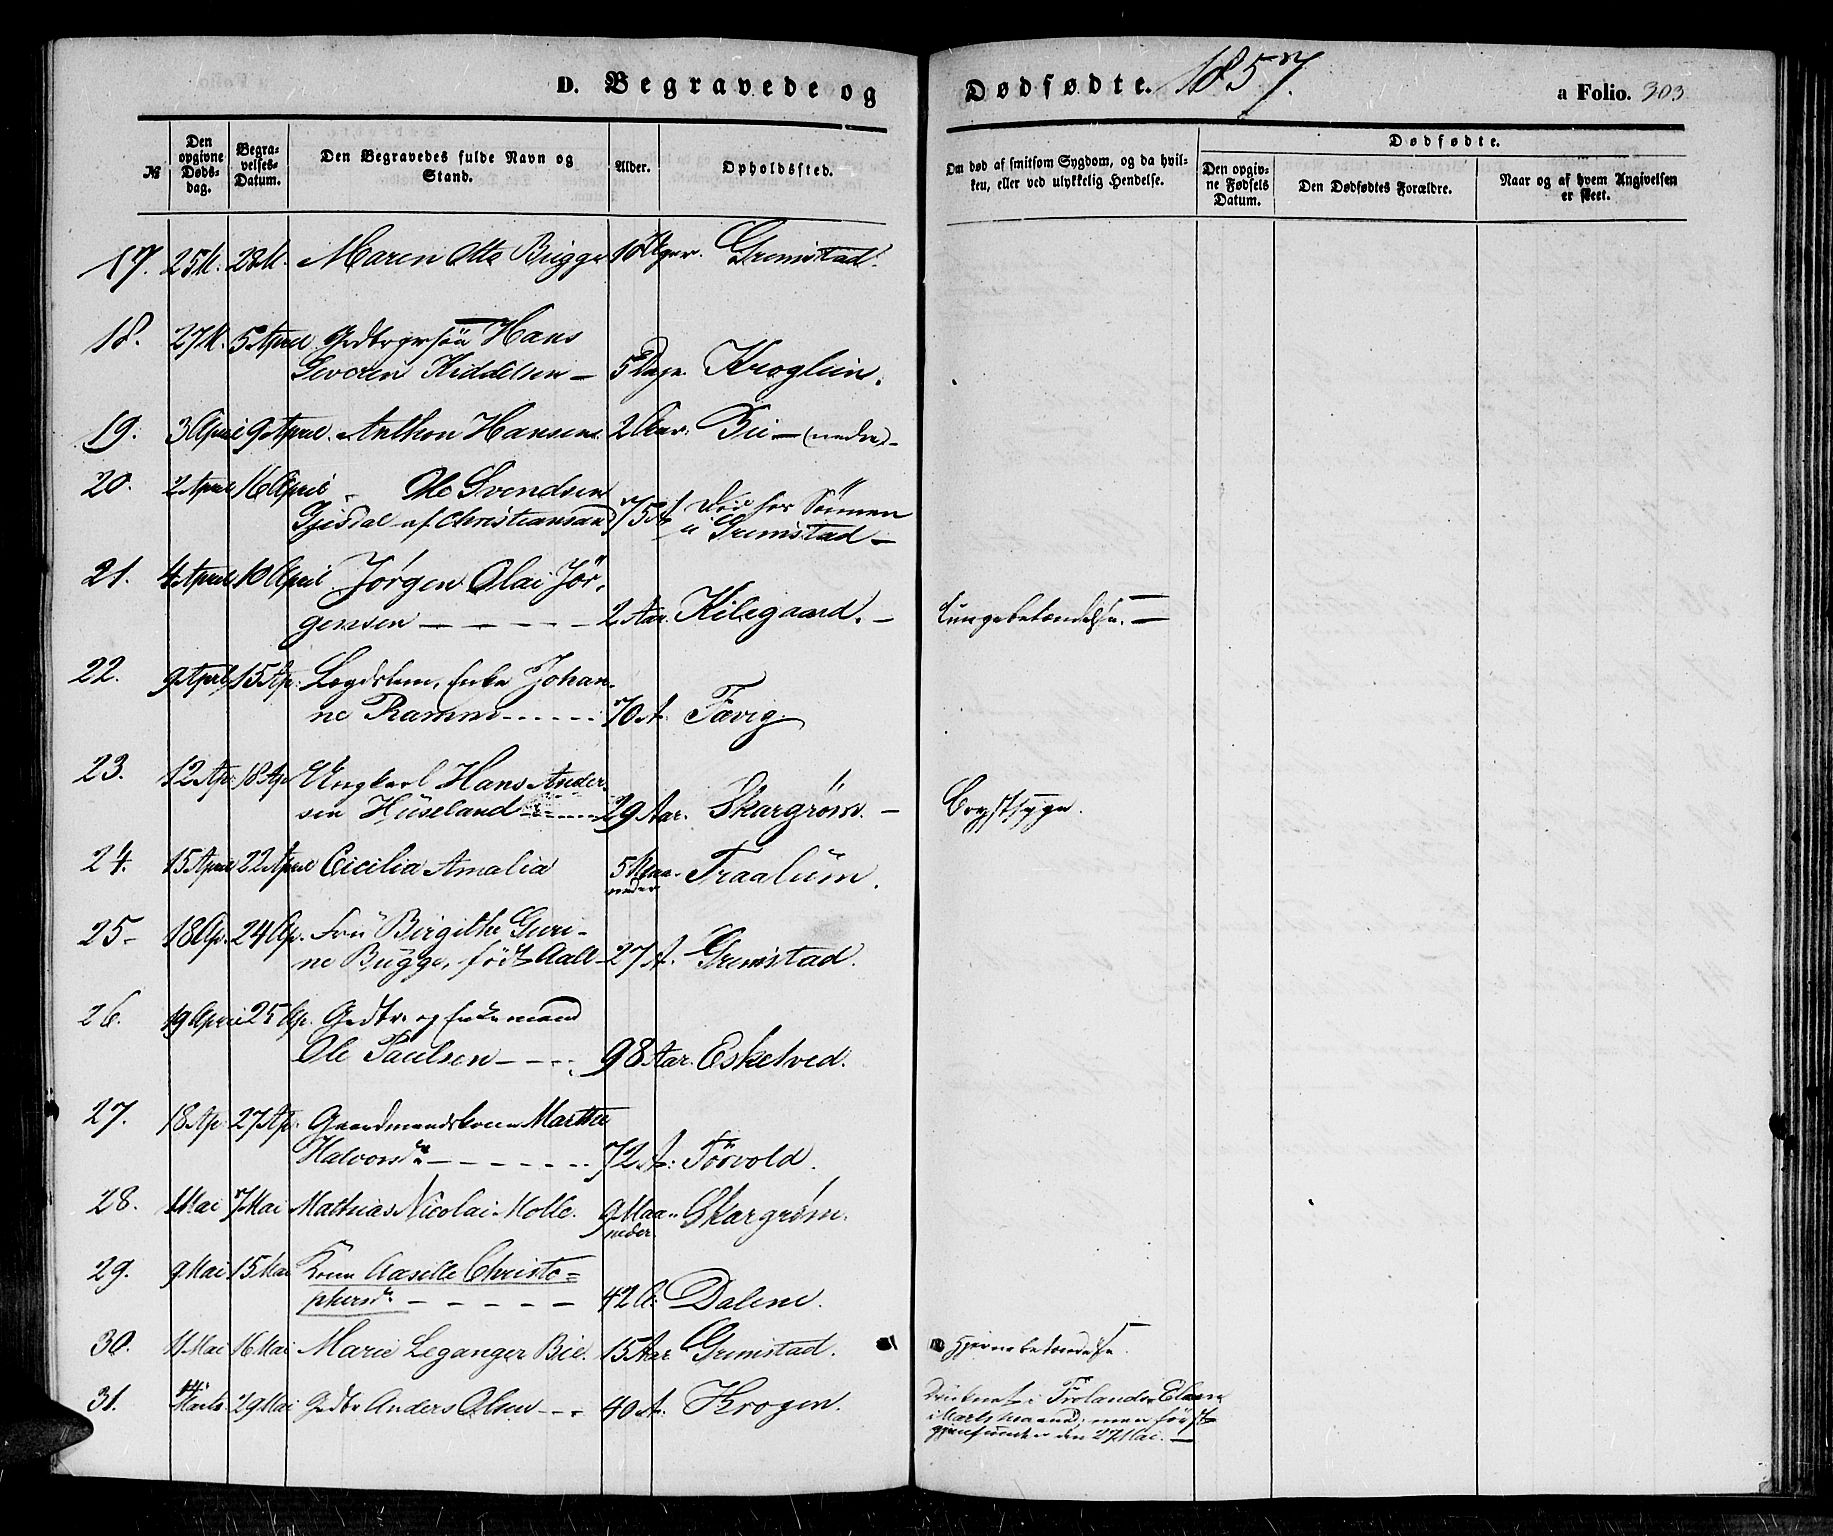 D. Begravede og Dødfødte. 1857. a Folio. 303
№ Den opgivne Døds-dag. Begra-velses-Datum. Den Begravedes fulde Navn og Stand. Alder. Opholdssted. Om død af smitsom Sygdom, og da hvil-ken, eller ved ulykkelig Hendelse. Dødfødte. Den opgiv-ne Fødsels Datum. Den Dødfødtes Forældre. Naar og af hvem Angivelsen er skeet.
17. 25 M. 28 M. Maren Otte Bugge Grimstad.
18. 27 M. 5 April Hans
Severin Kiddelsen — 5 Dage. Kroglein.
19. 3 April 9 April. Anthon Hansen. 2 Aar. Bie — (nedre) —
20. 2 April 16 April Ole Svendsen
Gjesdal af Christiansand 75 A. Død hos Sønnen
i Grimstad —
21. 4 April 10 April Jørgen Olai Jør-
gensen — — — — — 2 Aar. Kilegaard. — Lungebetændelse. —
22. 9 April 15 Ap. Lægdslem, Enke Johan-
ne Ramm - - - - - 70 A. Fævig
23. 12 Ap. 18 Ap Ungkarl Hans Ander-
sen Hüseland - - - - - 29 Aar. Skargrøm. — Brystsyge.
24. 15 April 22 April Cicilia Amalia 5 Maa-
neder Traalüm.
25 - 18 Ap. 24 Ap. Frü Birgithe Guri-
ne Bugge, født Aall — 27 A. Grimstad.
26. 19 April 25 Ap. Gadbr. og Enkemand
Ole Paulsen — - - - 98 Aar. Eskelved.
27. 18 Ap. 27 Ap. Gaardmandskone Marthe
Halvorsdn — — - - - - 72 A. Törvold.
28. 1 Mai 7 Mai Mathias Nicolai Molle. 9 Maa-
neder. Skargrøm.
29. 9 Mai 15 Mai Kone Aasille Christo=
phersdn — — — — — 42 A. Dalene.
30. 11 Mai 16 Mai Marie Leganger Bie. 15 Aar Grimstad. Hjernebetændelse.
31. 14 Marts. 29 Mai Gdbr Anders Olsen — - - 40 A. Krogen. Druknet i Frolands Elven
i Marts maaned; men først
gjenfunden den 27 Mai. —